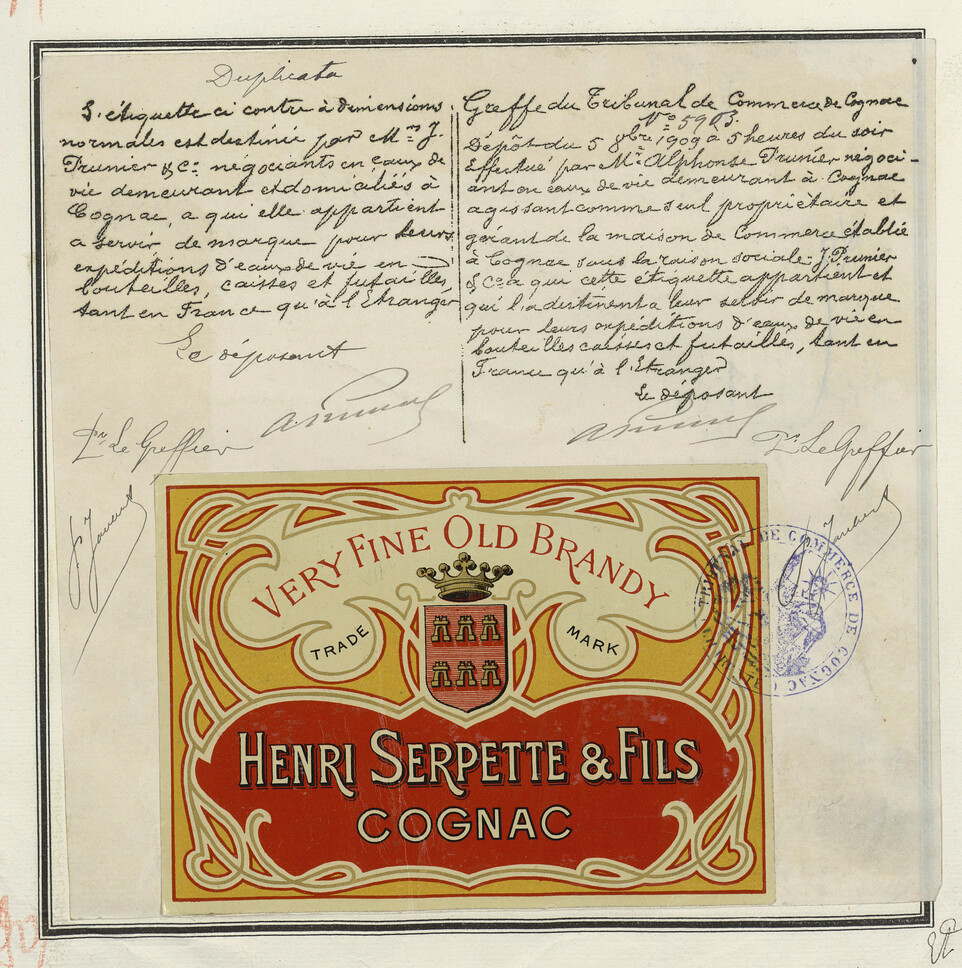 Duplicata
L'étiquette ci contre à dimensions
normales est destinée par M.rs J.
Prunier & Cie négociants en eaux de
vie demeurant et domiciliés à
Cognac, a qui elle appartient
a servir de marque pour leurs
expéditions d'eaux de vie en
bouteilles, caisses et futailles,
tant en France qu'à l'Etranger
Le déposant
Pr Le Greffier
Greffe du Tribunal de Commerce de Cognac
No 5903.
Dépôt du 5 8bre 1909 à 5 heures du soir
Effectué par Mr Alphonse Prunier négoci-
ant en eaux de vie demeurant à Cognac
agissant comme seul propriétaire et
gérant de la maison de Commerce établie
à Cognac sous la raison sociale J. Prunier
& Cie a qui cette étiquette appartient et
qui l'a destinent a leur servir de marque
pour leurs expéditions d'eaux de vie en
bouteilles caisses et futailles, tant en
France qu'à l'Etranger
Le déposant
Pr Le Greffier
VERY FINE OLD BRANDY
TRADE MARK
HENRI SERPETTE & FILS
COGNAC
TRIBUNAL DE COMMERCE DE COGNAC